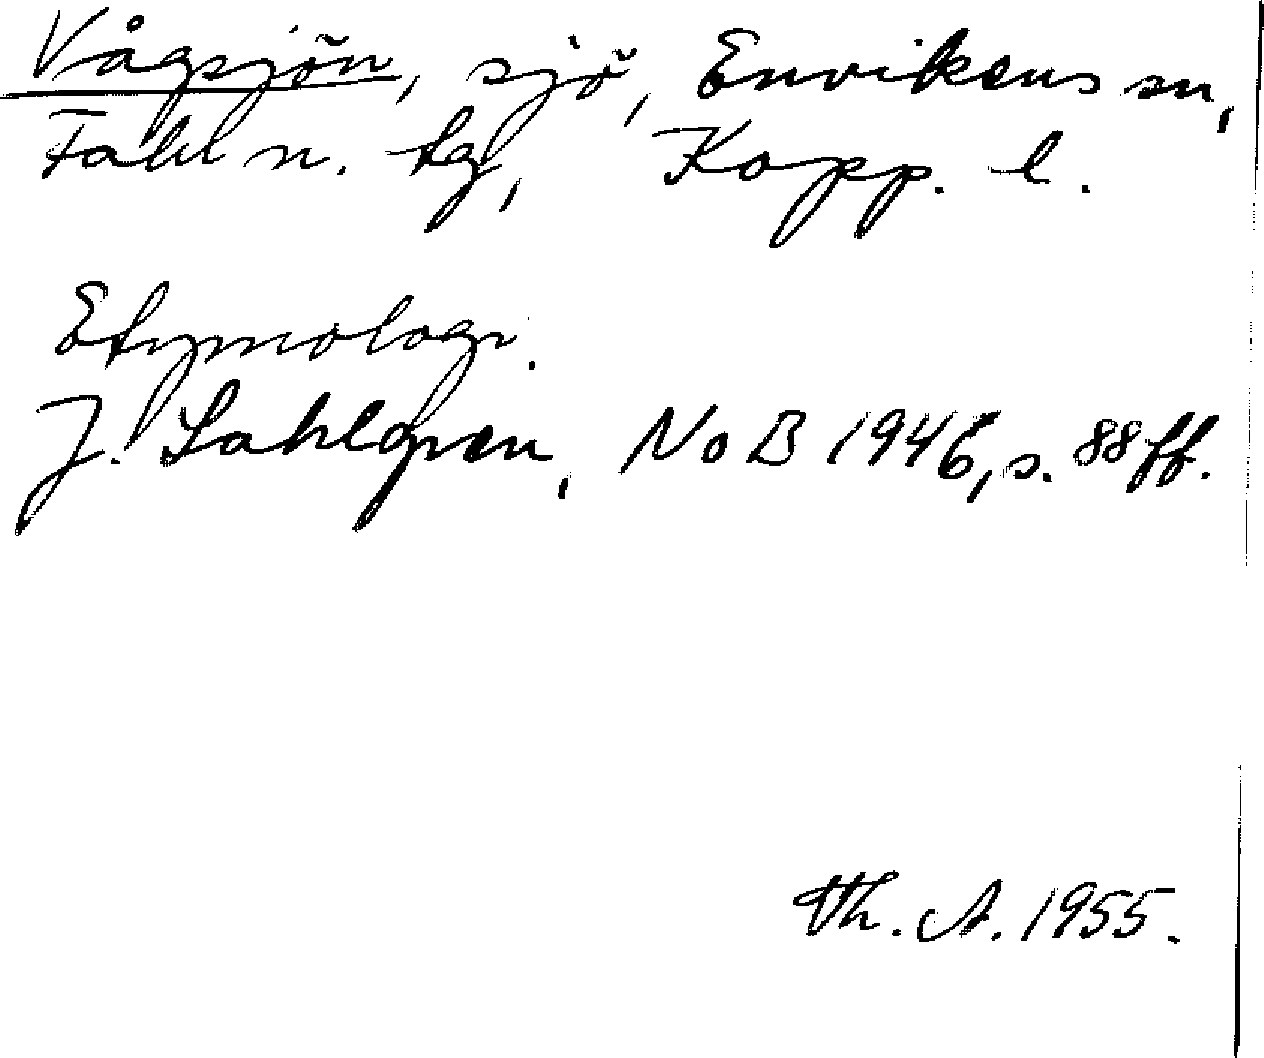 Vågsjön, sjö, Envikens sn,
Falu n. tg, Kopp. l.
Etymologi.
J. Sahlgren, NoB 1946, s. 88 ff.
Th. A. 1955.